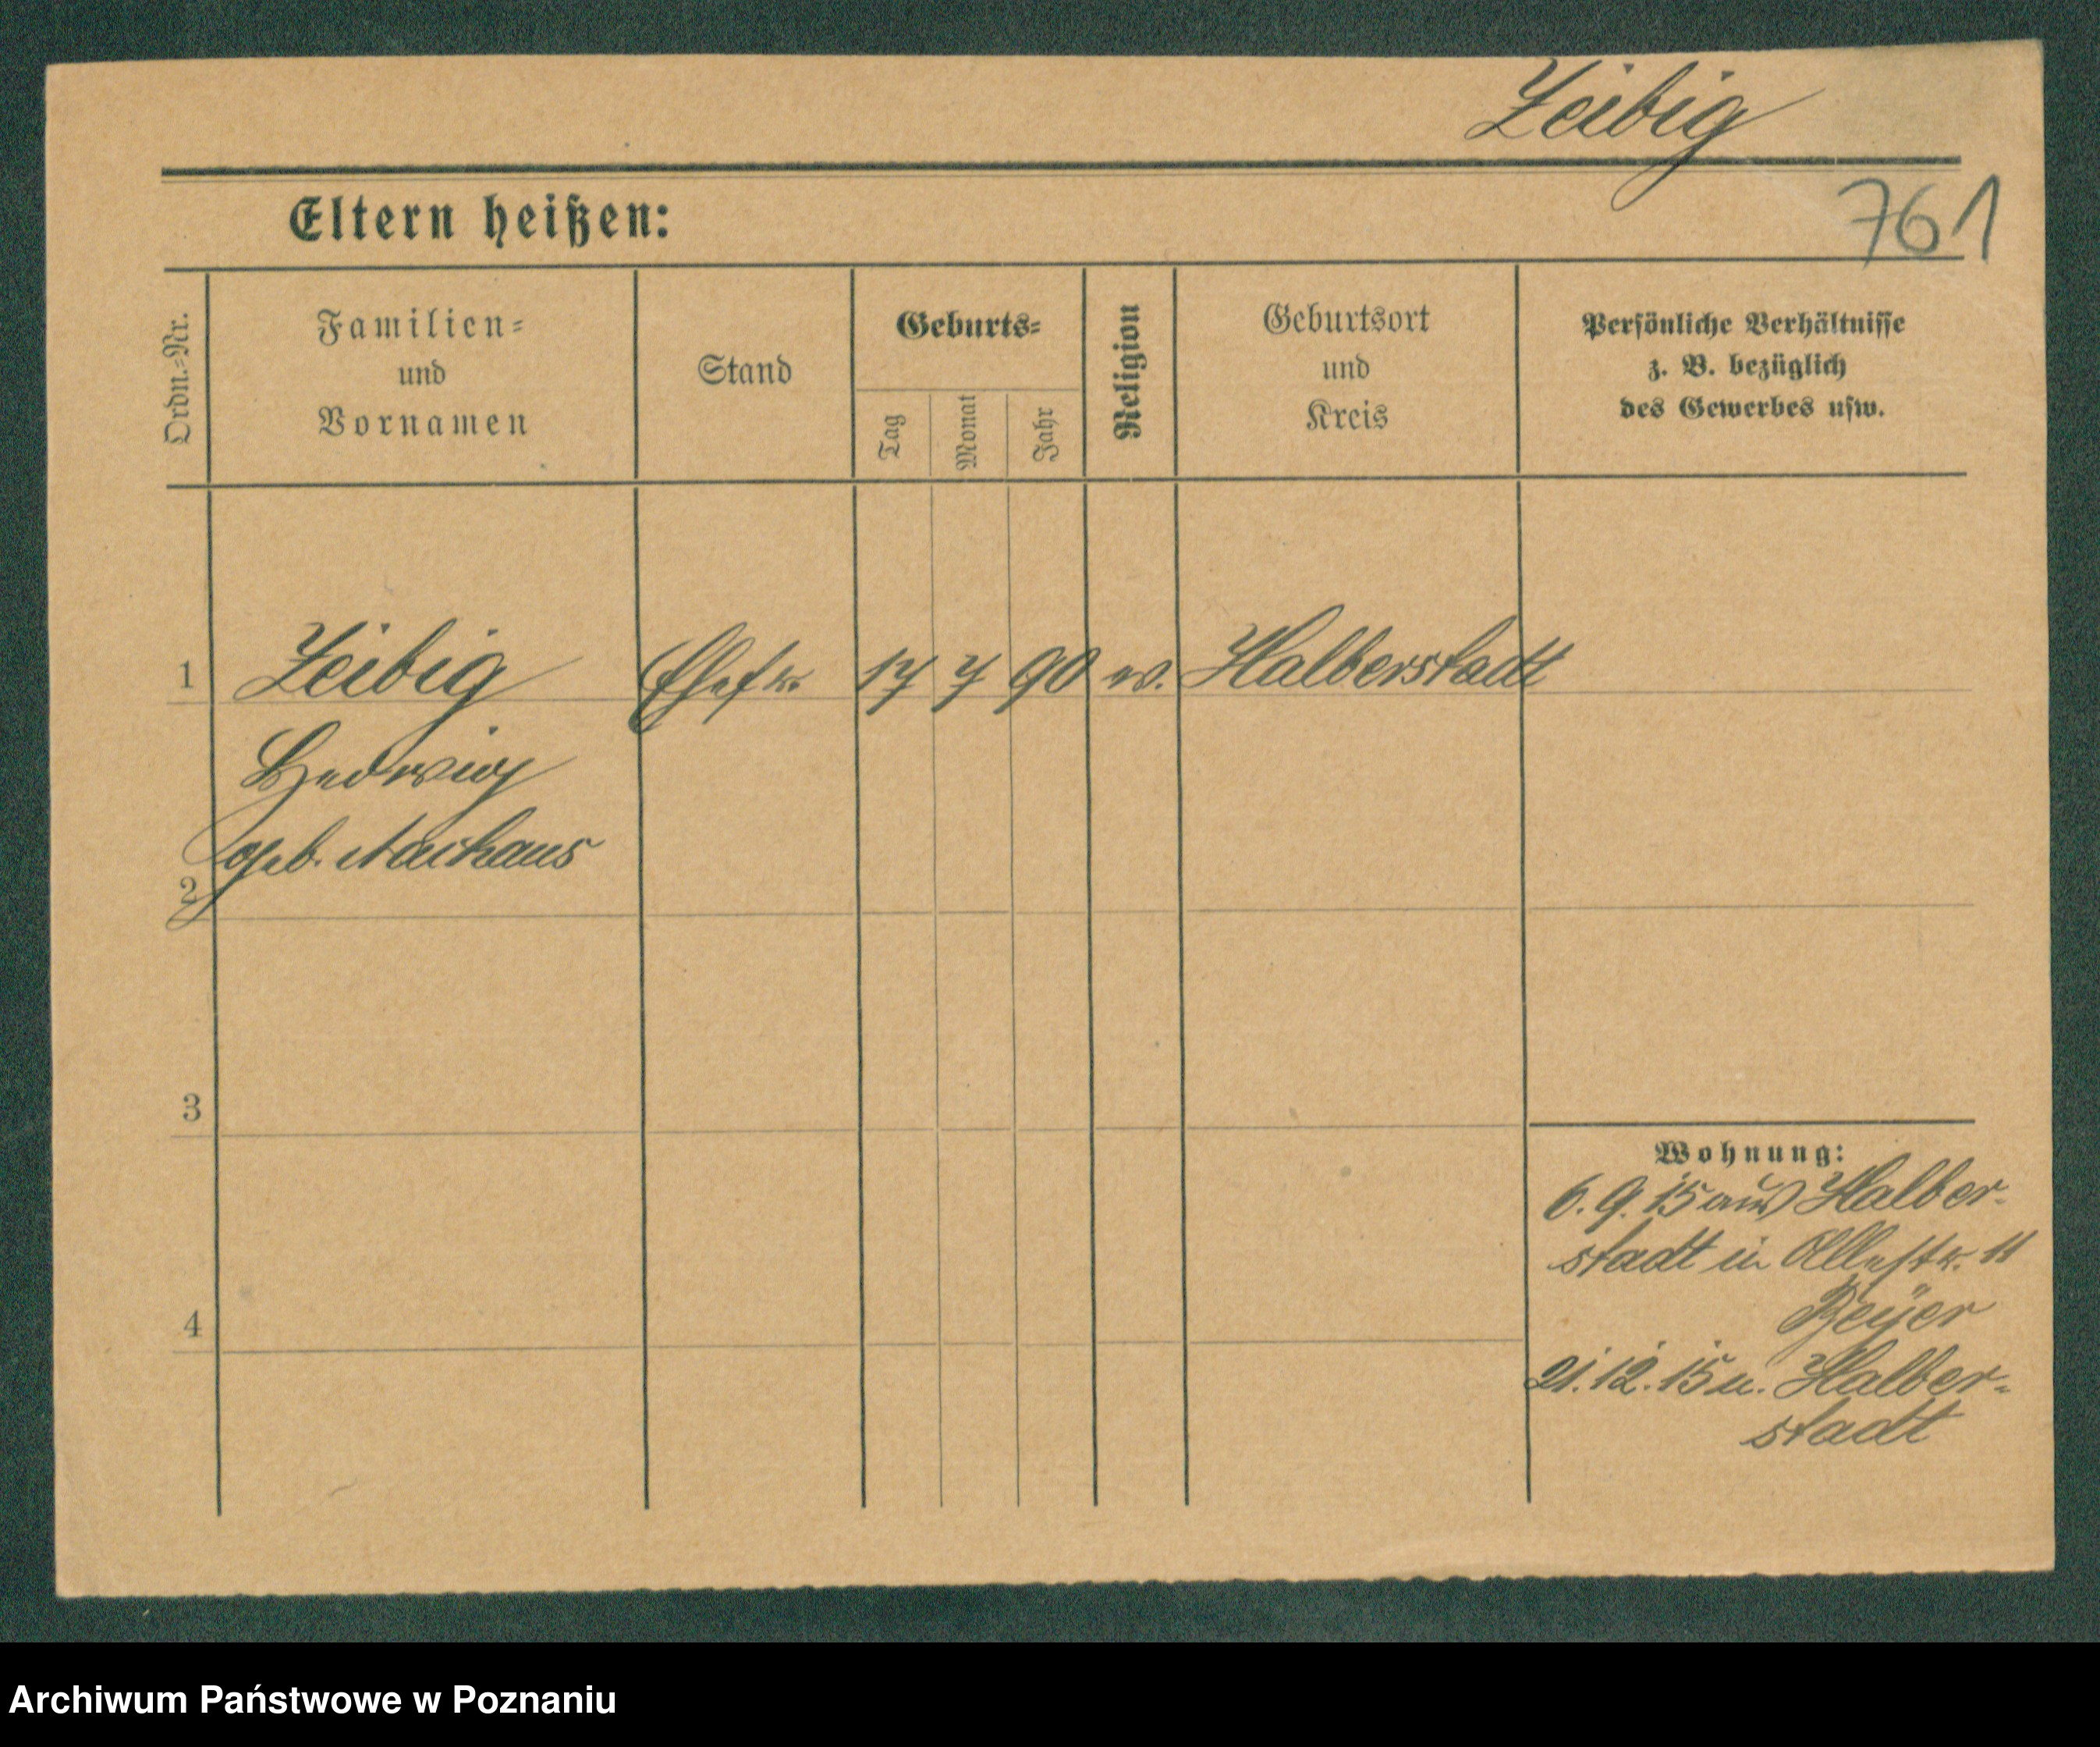 Leibig
761
Eltern heißen:
Ordn.-Nr.
Familien-
und
Vornamen
Stand
Geburts-
Tag
Monat
Jahr
Religion
Geburtsort
und
Kreis
Persönliche Verhältnisse
z. B. bezüglich
des Gewerbes usw.
1 Leibig Ehefr. 17 7 90 ev. Halberstadt
Hedwig
geb.
2
3
4
Wohnung:
6.9.15 aus Halber-
stadt in 11
Beyer
21.12.15 n. Halber-
stadt
Archiwum Państwowe w Poznaniu